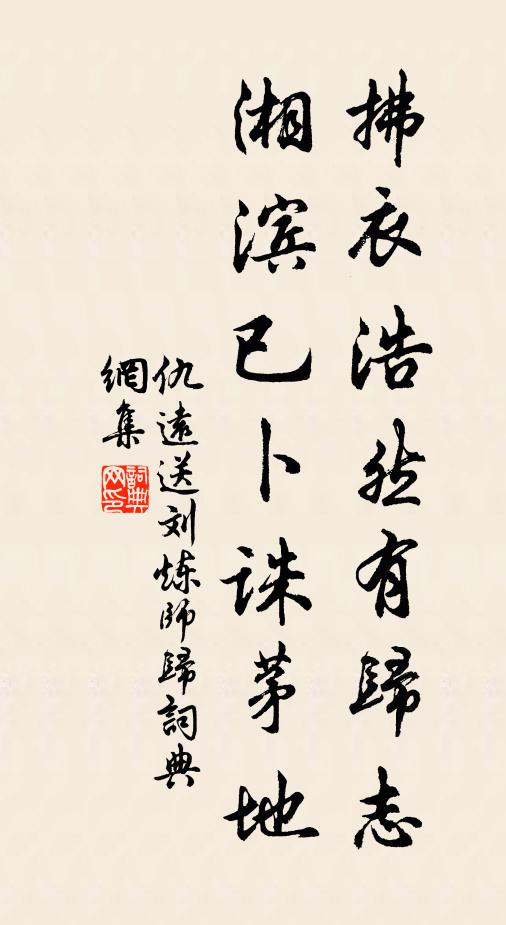 拂衣浩然有歸志
湘滨已卜誅茅地
仇遠送刘炼师歸詞典
網集
詞典
网印